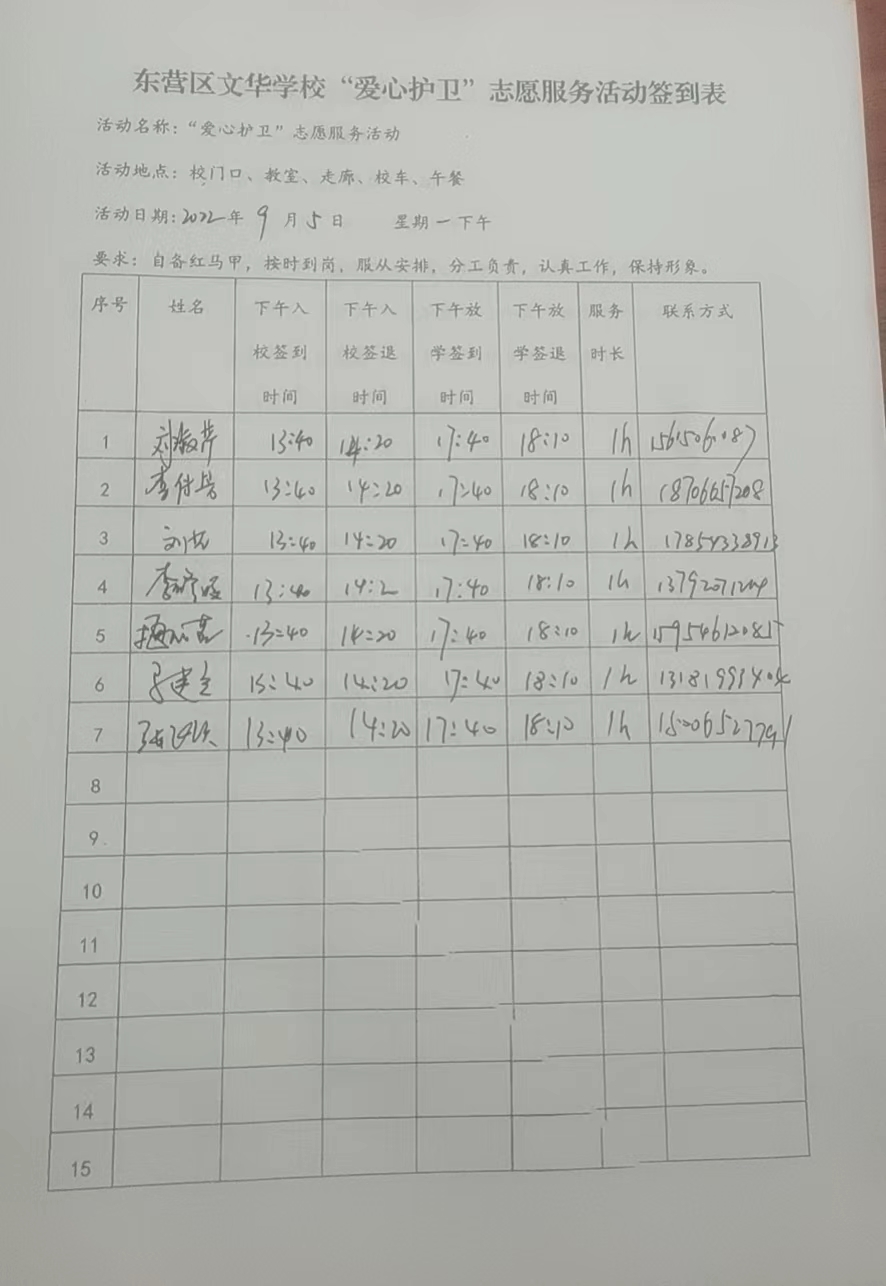 东营区文华学校“爱心护卫”志愿服务活动签到表
活动名称：“爱心护卫”志愿服务活动
活动地点：校门口、教室、走廊、校车、午餐
活动日期：2022年 9 月 5 日 星期一下午
要求：自备红马甲，按时到岗，服从安排，分工负责，认真工作，保持形象。
序号 姓名 下午入校签到时间 下午入校签退时间 下午放学签到时间 下午放学签退时间 服务时长 联系方式
1 13:40 14:20 17:40 18:10 1h
2 13:40 14:20 17:40 18:10 1h 18706657208
3 13:40 14:20 17:40 18:10 1h 17854338913
4 13:40 14:2 17:40 18:10 1h
5 13:40 14:20 17:40 18:10 1h 15954612085
6 14:20 17:40 18:10 1h
7 13:40 14:20 17:40 18:10 1h 15006527791
8
9
10
11
12
13
14
15